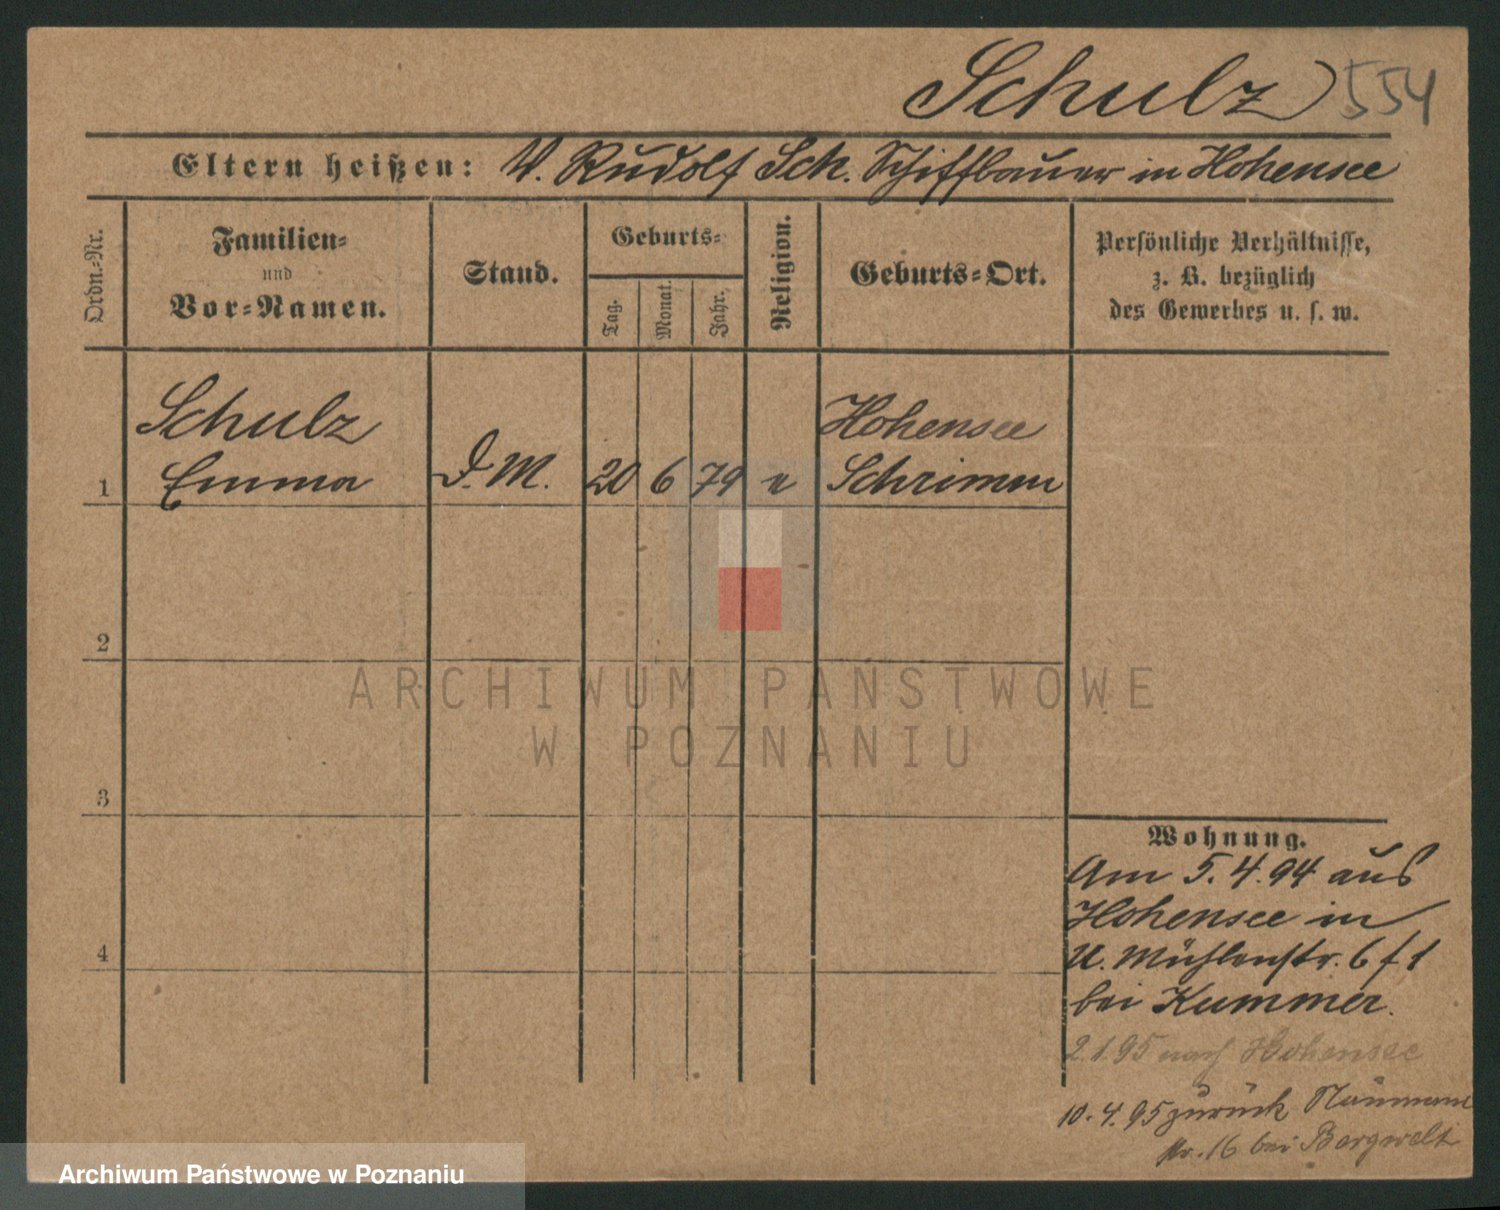 Schulz 554
Eltern heißen: V. Rudolf Sch. Schiffbauer in Hohensee
Ordn.-Nr.
Familien-
und
Vor-Namen.
Stand.
Geburts-
Tag.
Monat.
Jahr.
Religion.
Geburts-Ort.
Persönliche Verhältnisse,
z. B. bezüglich
des Gewerbes u. s. w.
Schulz Hohensee
1 Emma D. M. 20 6 79 e Schrimm
2
ARCHIWUM PAŃSTWOWE
W POZNANIU
3
Wohnung.
Am 5.4.94 aus
Hohensee in
U. Mühlenstr. 6 f 1
bei Kummer.
2.1.95 nach Hohensee
10.4.95 zurück Naumann
Nr. 16 bei
4
Archiwum Państwowe w Poznaniu